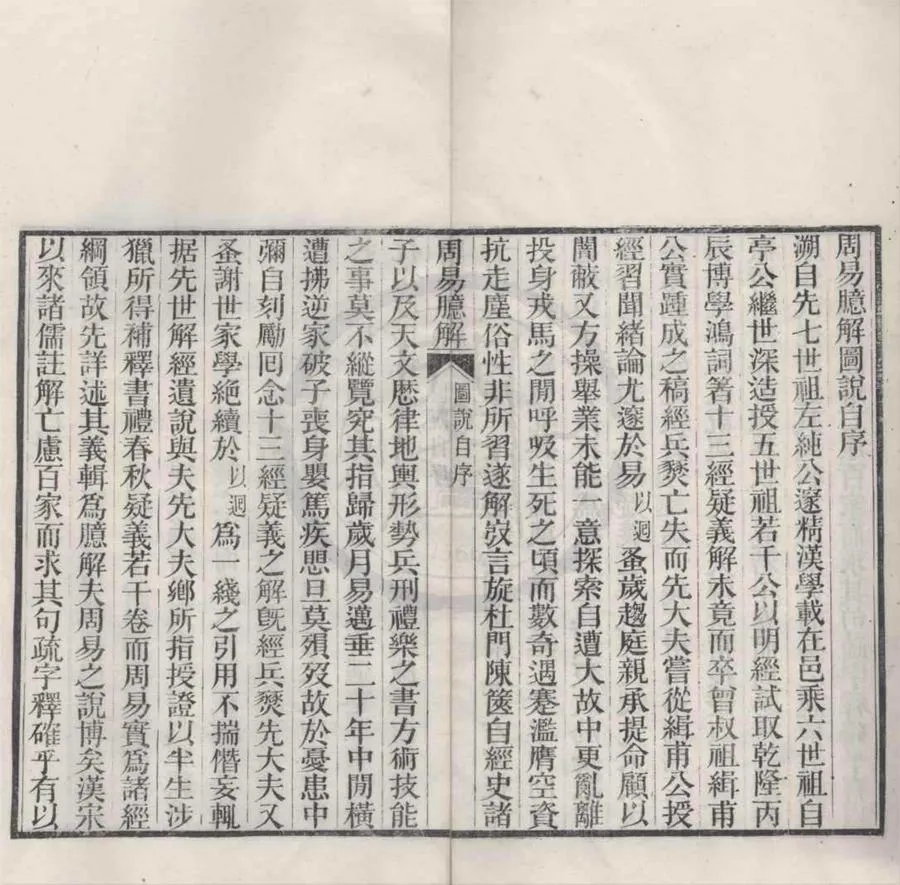 周易臆解圖說自序
溯自先七世祖左純公邃精漢學載在邑乘六世祖自
亭公繼世深造授五世祖若千公以明經試取乾隆丙
辰博學鴻詞箸十三經疑義解未竟而卒曾叔祖緝甫
公實踵成之稿經兵燹亡失而先大夫嘗從緝甫公授
經習聞緒論尤邃於易以迥蚤歲趨庭親承提命顧以
闇蔽又方操舉業未能一意探索自遭大故中更亂離
投身戎馬之閒呼吸生死之頃而數奇遇蹇濫膺空資
抗走塵俗性非所習遂解彣言旋杜門陳篋自經史諸
周易臆解
圖說自序
子以及天文厯律地輿形勢兵刑禮樂之書方術技能
之事莫不縱覽究其指歸歲月易邁垂二十年中閒橫
遭拂逆家破子喪身嬰篤疾思旦莫殞歿故於憂患中
彌自刻勵囘念十三經疑義之解旣經兵燹先大夫又
蚤謝世家學絕續於以迥爲一綫之引用不揣僭妄輒
据先世解經遺說與夫先大夫鄉所指授證以半生涉
獵所得補釋書禮春秋疑義若干卷而周易實爲諸經
綱領故先詳述其義輯爲臆解夫周易之說博矣漢宋
以來諸儒註解亡慮百家而求其句疏字釋確乎有以